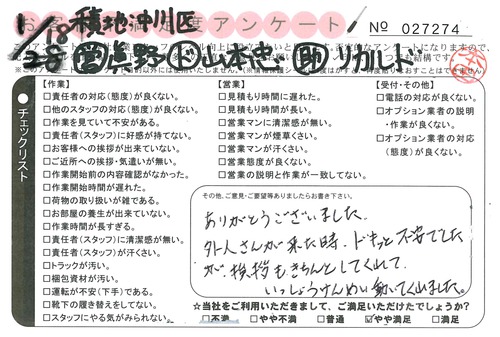 お客様満足度アンケート
No 027274
11/18 積地沖川区
28 営真野 ド山本忠 助リカルド
チェックリスト
【作業】
□責任者の対応(態度)が良くない。
□他のスタッフの対応(態度)が良くない。
□作業を見ていて不安がある。
□責任者(スタッフ)に好感が持てない。
□お客様への挨拶が出来ていない。
□ご近所への挨拶・気遣いが無い。
□作業開始前の内容確認がなかった。
□作業開始時間が遅れた。
□荷物の取り扱いが雑である。
□お部屋の養生が出来ていない。
□作業時間が長すぎる。
□責任者(スタッフ)に清潔感が無い。
□責任者(スタッフ)が汗くさい。
□トラックが汚い。
□梱包資材が汚い。
□運転が不安(下手)である。
□靴下の履き替えをしてない。
□スタッフにやる気がみられない。
【営業】
□見積もり時間に遅れた。
□見積もり時間が長い。
□営業マンに清潔感が無い。
□営業マンが煙草くさい。
□営業マンが汗くさい。
□営業態度が良くない。
□営業の説明と作業が一致してない。
【受付・その他】
□電話の対応が良くない。
□オプション業者の説明
・作業が良くない。
□オプション業者の対応
(態度)が良くない。
その他、ご意見・ご要望等ありましたらお書き下さい。
ありがとうございました。
外人さんが来た時、ドキッと不安でした
が、挨拶もきちんとしてくれて、
いっしょうけんめい動いてくれました。
☆当社をご利用いただきまして、ご満足いただけたでしょうか?
□不満 □やや不満 □普通 ☑やや満足 □満足